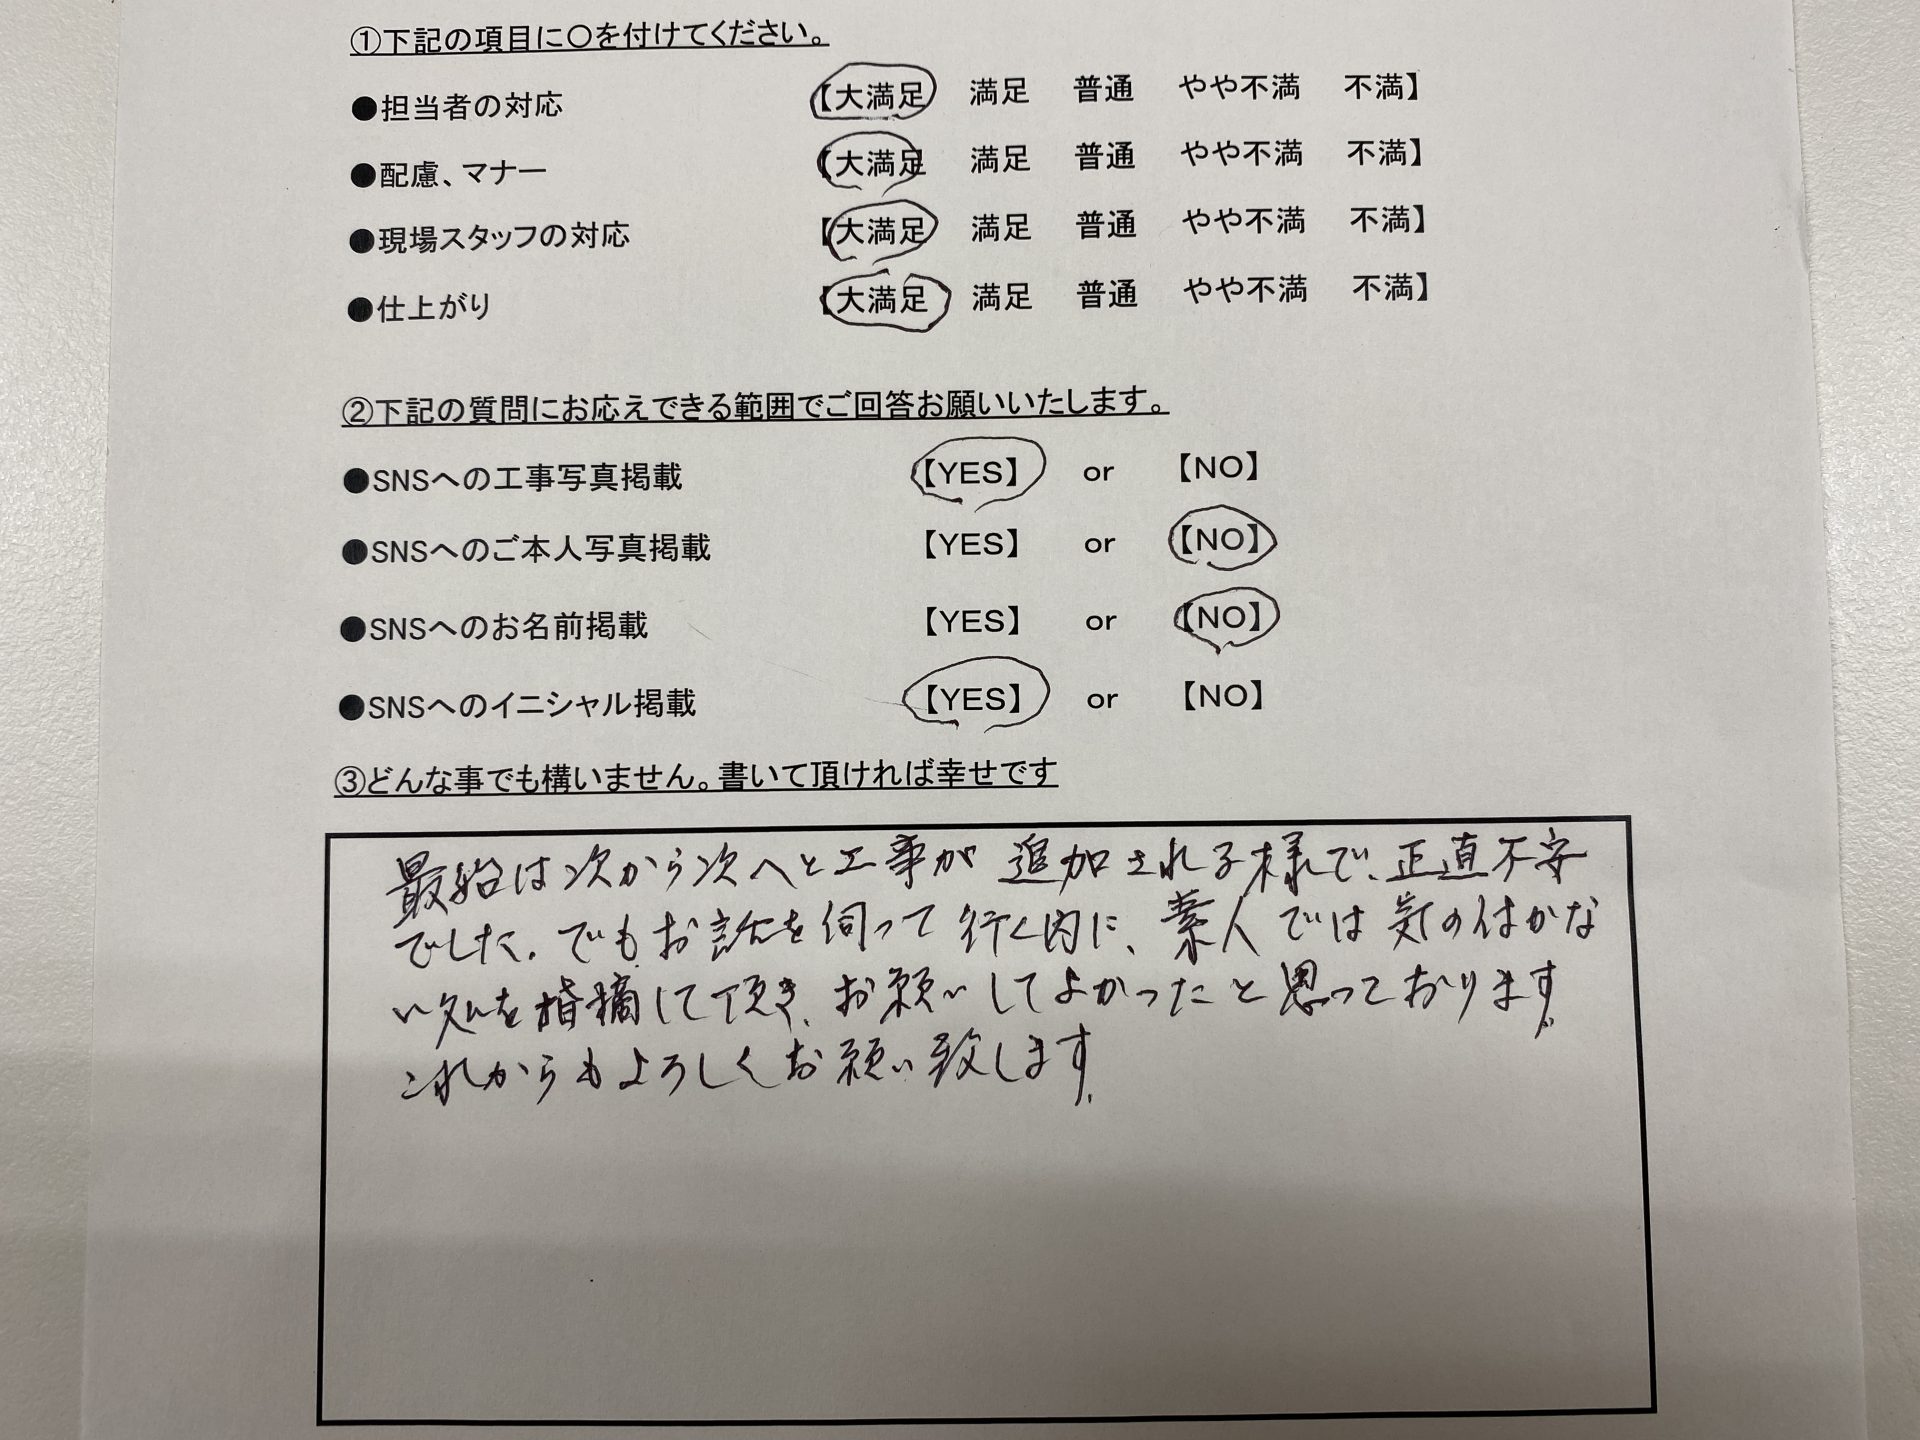 ①下記の項目に〇を付けてください。
●担当者の対応 【大満足 満足 普通 やや不満 不満】
●配慮、マナー 【大満足 満足 普通 やや不満 不満】
●現場スタッフの対応 【大満足 満足 普通 やや不満 不満】
●仕上がり 【大満足 満足 普通 やや不満 不満】
②下記の質問にお応えできる範囲でご回答お願いいたします。
●SNSへの工事写真掲載 【YES】 or 【NO】
●SNSへのご本人写真掲載 【YES】 or 【NO】
●SNSへのお名前掲載 【YES】 or 【NO】
●SNSへのイニシャル掲載 【YES】 or 【NO】
③どんな事でも構いません。書いて頂ければ幸せです
最始は次から次へと工事が追加される様で、正直不安
でした。でもお話を伺って行く内に、素人では気の付かな
い処を指摘して頂き、お願いしてよかったと思っております。
これからもよろしくお願い致します。